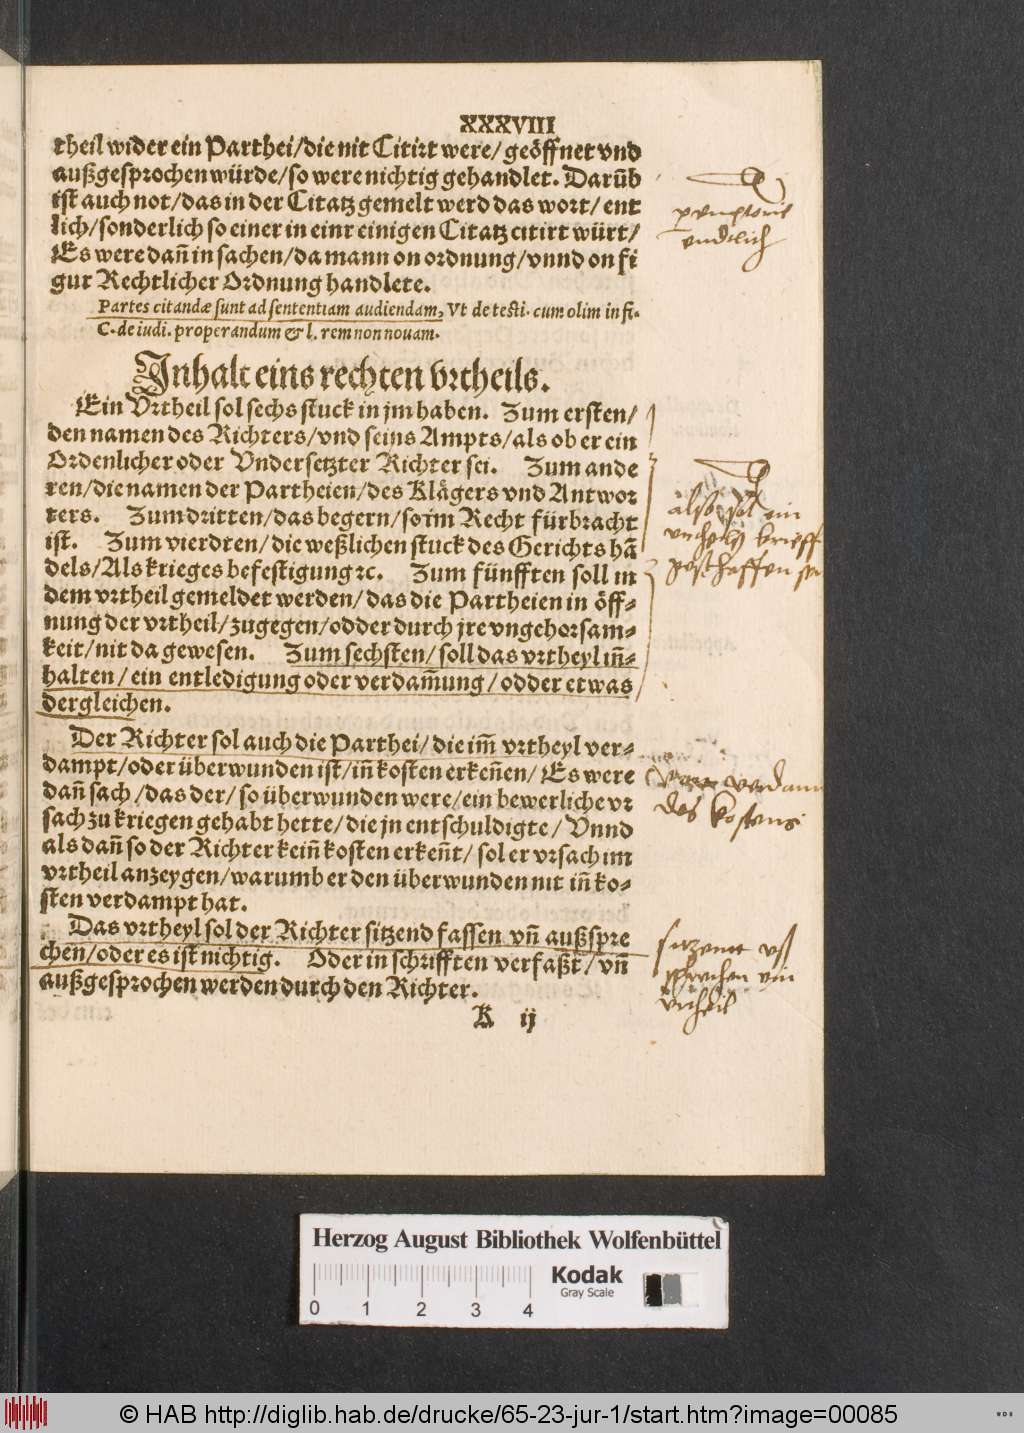 XXXVIII
theil wider ein Parthei/die nit Citirt were/geöffnet vnd
außgesprochen würde/so were nichtig gehandlet. Darūb
ist auch not/das in der Citatz gemelt werd das wort/ent
lich/sonderlich so einer in einr einigen Citatz citirt würt/
Es were dañ in sachen/da mann on ordnung/vnnd on fi
gur Rechtlicher Ordnung handlete.
Partes citandæ sunt ad sententiam audiendam, Vt de testi. cum olim in fi.
C. de iudi. properandum & l. rem non nouam.
peremptorie
endtlich
Inhalt eins rechten vrtheils.
Ein Vrtheil sol sechs stuck in jm haben. Zum ersten/
den namen des Richters/vnd seins Ampts/als ob er ein
Ordenlicher oder Vndersetzter Richter sei. Zum ande
ren/die namen der Partheien/des Klägers vnd Antwor
ters. Zum dritten/das begern/so im Recht fürbracht
ist. Zum vierdten/die weßlichen stuck des Gerichts hā
dels/Als krieges befestigung ꝛc. Zum fünfften soll in
dem vrtheil gemeldet werden/das die Partheien in öff-
nung der vrtheil/zugegen/odder durch jre vngehorsam-
keit/nit da gewesen. Zum sechsten/soll das vrtheyl iñ-
halten/ein entledigung oder verdam̄ung/odder etwas
dergleichen.
also sol ein
brieff
Der Richter sol auch die Parthei/die im̄ vrtheyl ver-
dampt/oder überwunden ist/iñ kosten erkeñen/Es were
dañ sach/das der/so überwunden were/ein bewerliche vr
sach zu kriegen gehabt hette/die jn entschuldigte/Vnnd
als dañ so der Richter keiñ kosten erkeñt/sol er vrsach im
vrtheil anzeygen/warumb er den überwunden nit iñ ko-
sten verdampt hat.
des kostens
Das vrtheyl sol der Richter sitzend fassen vñ außspre
chen/oder es ist nichtig. Oder in schrifften verfaßt/vñ
außgesprochen werden durch den Richter.
sprechen ein
vrtheil
K ij
Herzog August Bibliothek Wolfenbüttel
Kodak
Gray Scale
0 1 2 3 4
© HAB http://diglib.hab.de/drucke/65-23-jur-1/start.htm?image=00085